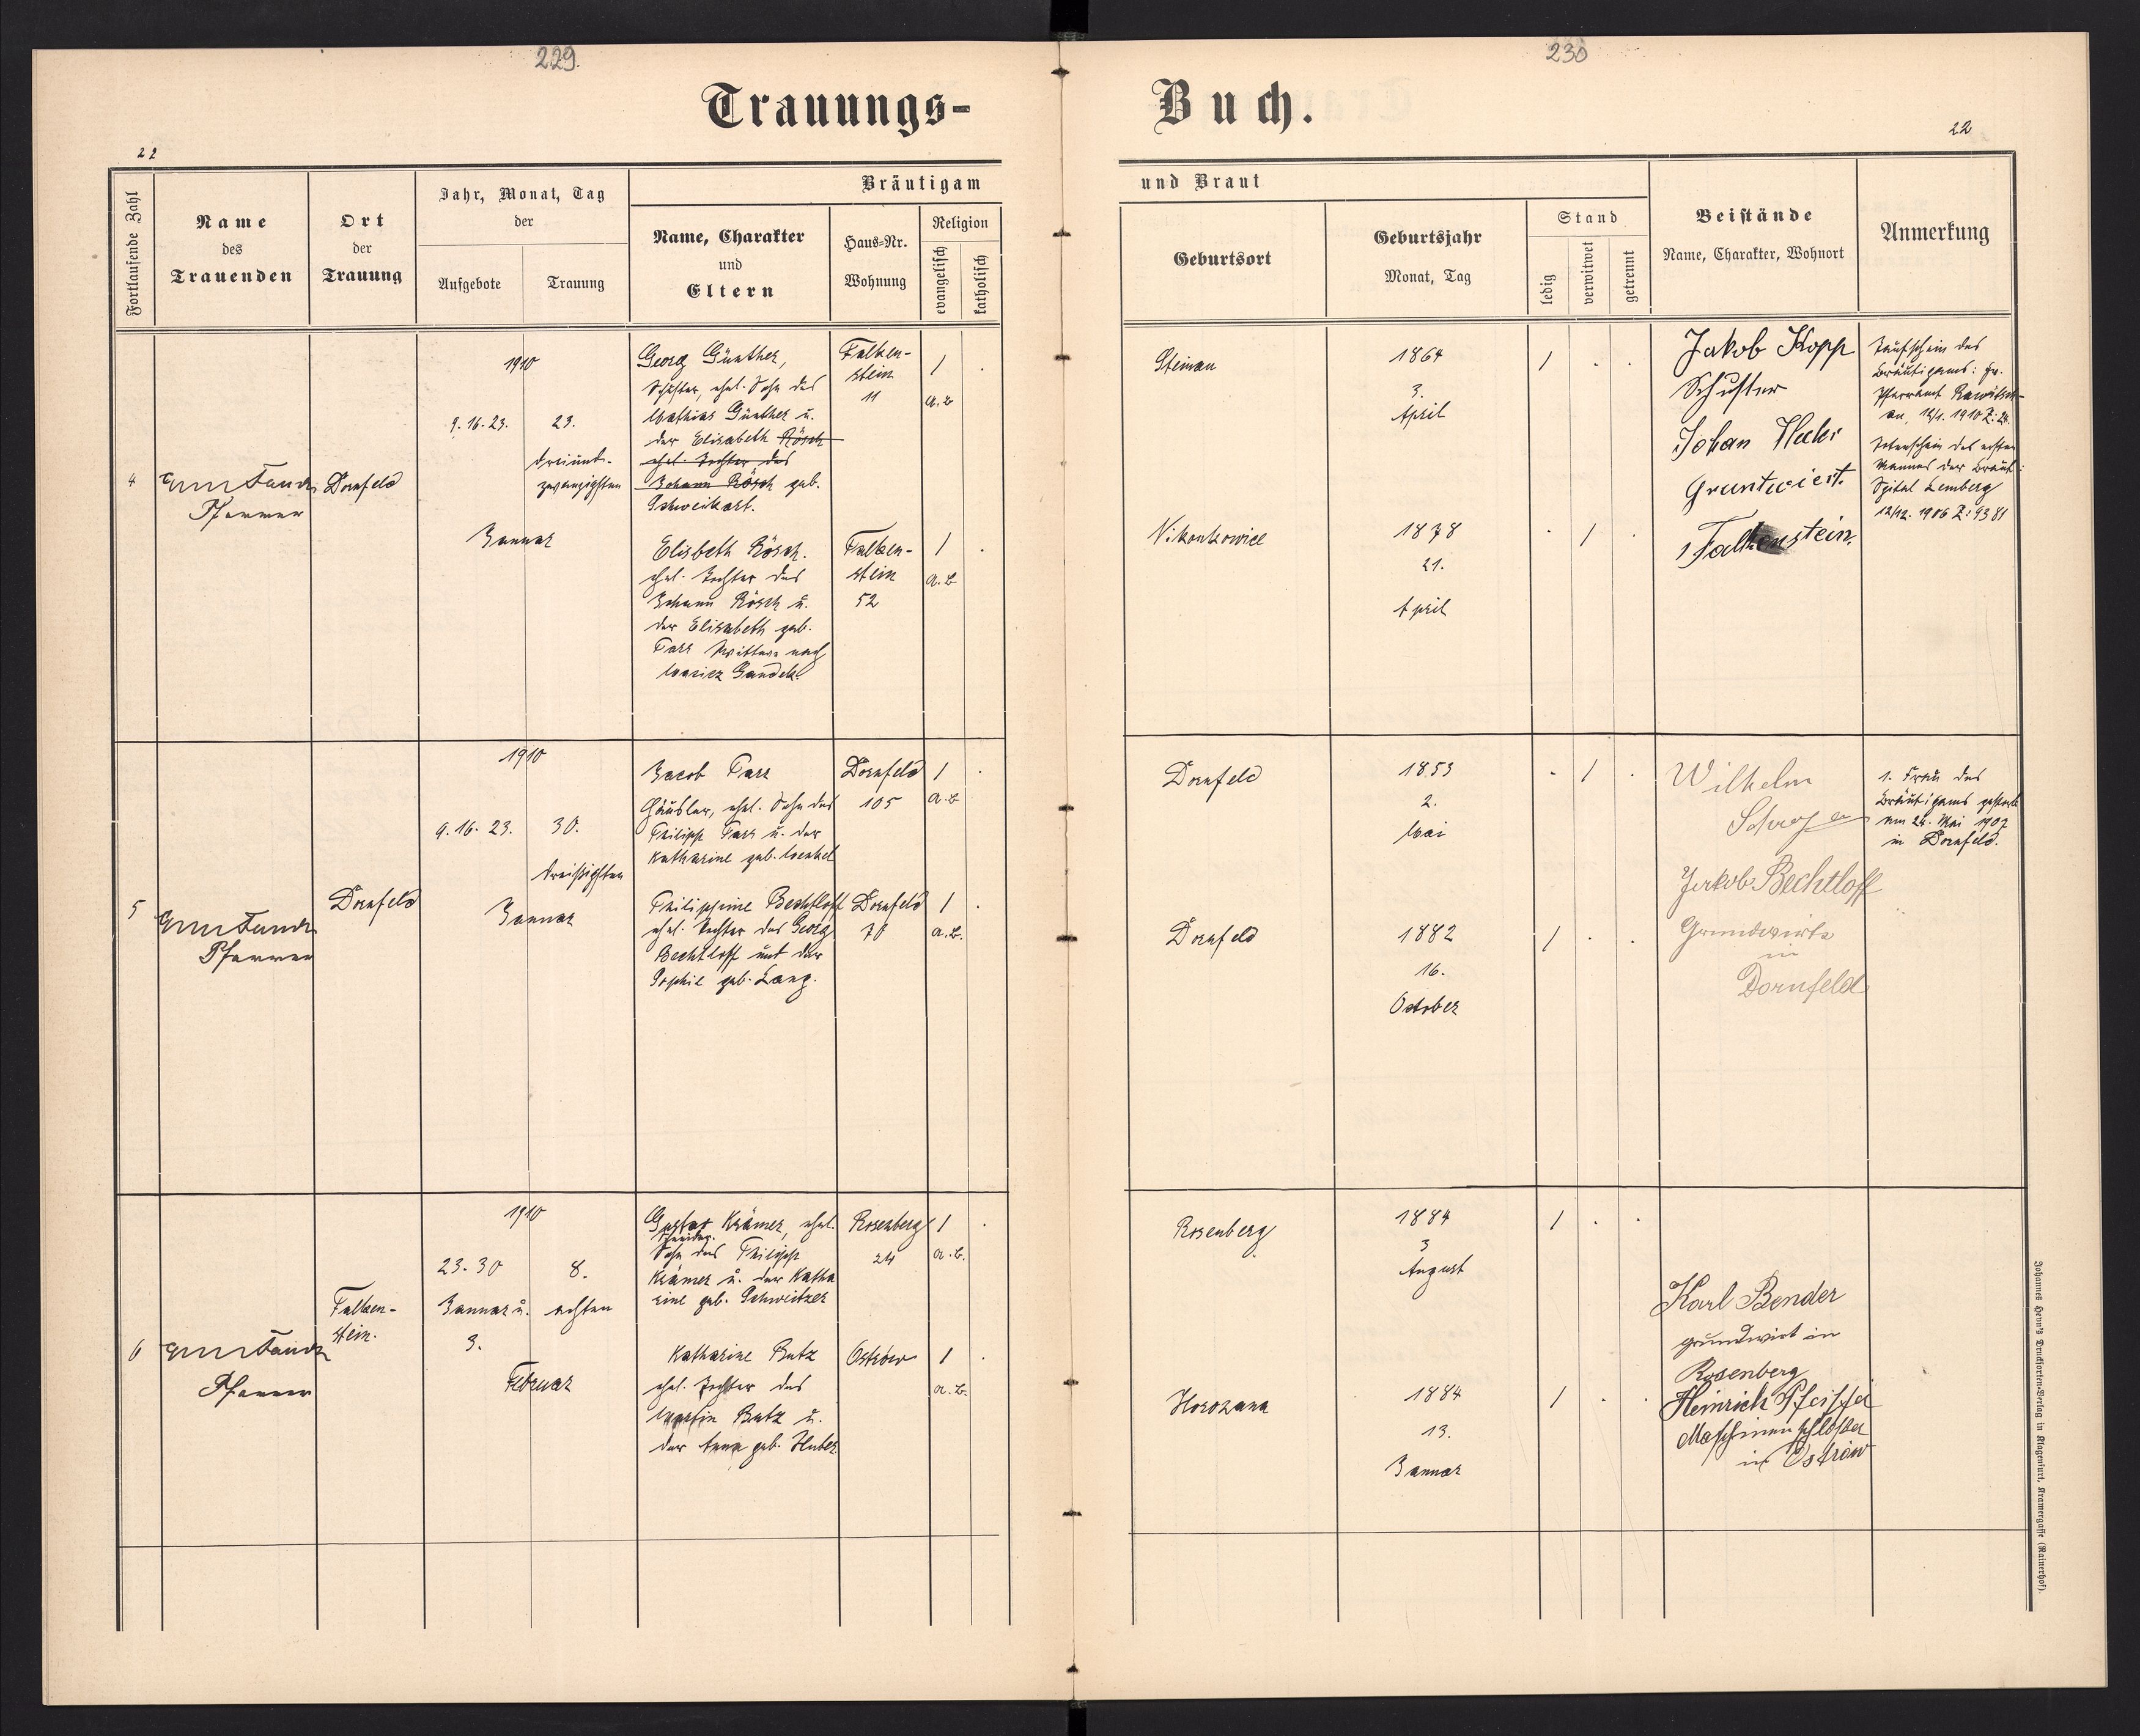 229.
230
Trauungs-
Buch.
22
22
Fortlaufende Zahl
Name
des
Trauenden
Ort
der
Trauung
Jahr, Monat, Tag
der
Aufgebote
Trauung
Bräutigam
Name, Charakter
und
Eltern
Haus-Nr.
Wohnung
Religion
evangelisch
katholisch
und Braut
Geburtsort
Geburtsjahr
Monat, Tag
Stand
ledig
verwitwet
getrennt
Beistände
Name, Charakter, Wohnort
Anmerkung
4
Pfarrer
Dornfeld
1910
9. 16. 23.
23.
dreiund-
zwanzigsten
Januar
Georg Günther,
Schuster, ehel. Sohn des
Mathias Günther u.
der Elisabeth Rösch
ehel. Tochter des
Johann Rösch geb.
Schweikart.
Falken-
stein
11
1
a. B
Elisbeth Rösch.
ehel. Tochter des
Johann Rösch u.
der Elisabeth geb.
Farr Wittwe nach
Falken-
stein
52
1
a. B
Steinau
1864
3.
April
1
Nikonkowice
1878
21.
April
1
Jakob Kopp
Schuster
Johan
Gruntwiert.
Falkenstein.
Taufschein des
Bräutigams: Ev.
Pfarramt
1910 Z: 24.
Totenschein des ersten
Mannes der Braut:
Spital Lemberg
12/12. 1906 Z: 9381
5
Pfarrer
Dornfeld
1910
9. 16. 23.
30.
dreißigsten
Januar
Jacob Farr
Häusler, ehel. Sohn des
Philipp Farr u. der
Katharine geb. Merkel
Dornfeld
105
1
a. B
Philippine Bechtloff
ehel. Tochter des Georg
Bechtloff und der
Sophie geb. Lang.
Dornfeld
70
1
a. B.
Dornfeld
1853
2.
Mai
1
Dornfeld
1882
16.
October
1
Wilhelm
Jakob Bechtloff
Grundwirte
in
Dornfeld
1. Frau des
Bräutigams gestorb.
am 24. Mai 1907
in Dornfeld.
6
Pfarrer
Falken-
stein.
1910
23. 30
8.
Januar u.
achten
3.
Februar
Gustav Krämer, ehel.
Schneider.
Sohn des Philipp
Krämer u. der Katha
rine geb. Schweitzer
Rosenberg
24
1
a. B.
Katharine Butz
ehel. Tochter des
Martin Butz u.
der Anna geb. Huber
Ostrów
1
a. B.
Rosenberg
1884
3
August
1
Horozana
1884
13.
Januar
1
Karl Bender
grundwirt in
Rosenberg
Heinrich Pfeiffer
Maschinenschlosser
in Ostrów
Johannes Heyn's Drucksorten-Verlag in Klagenfurt, Kramergasse (Rainerhof).